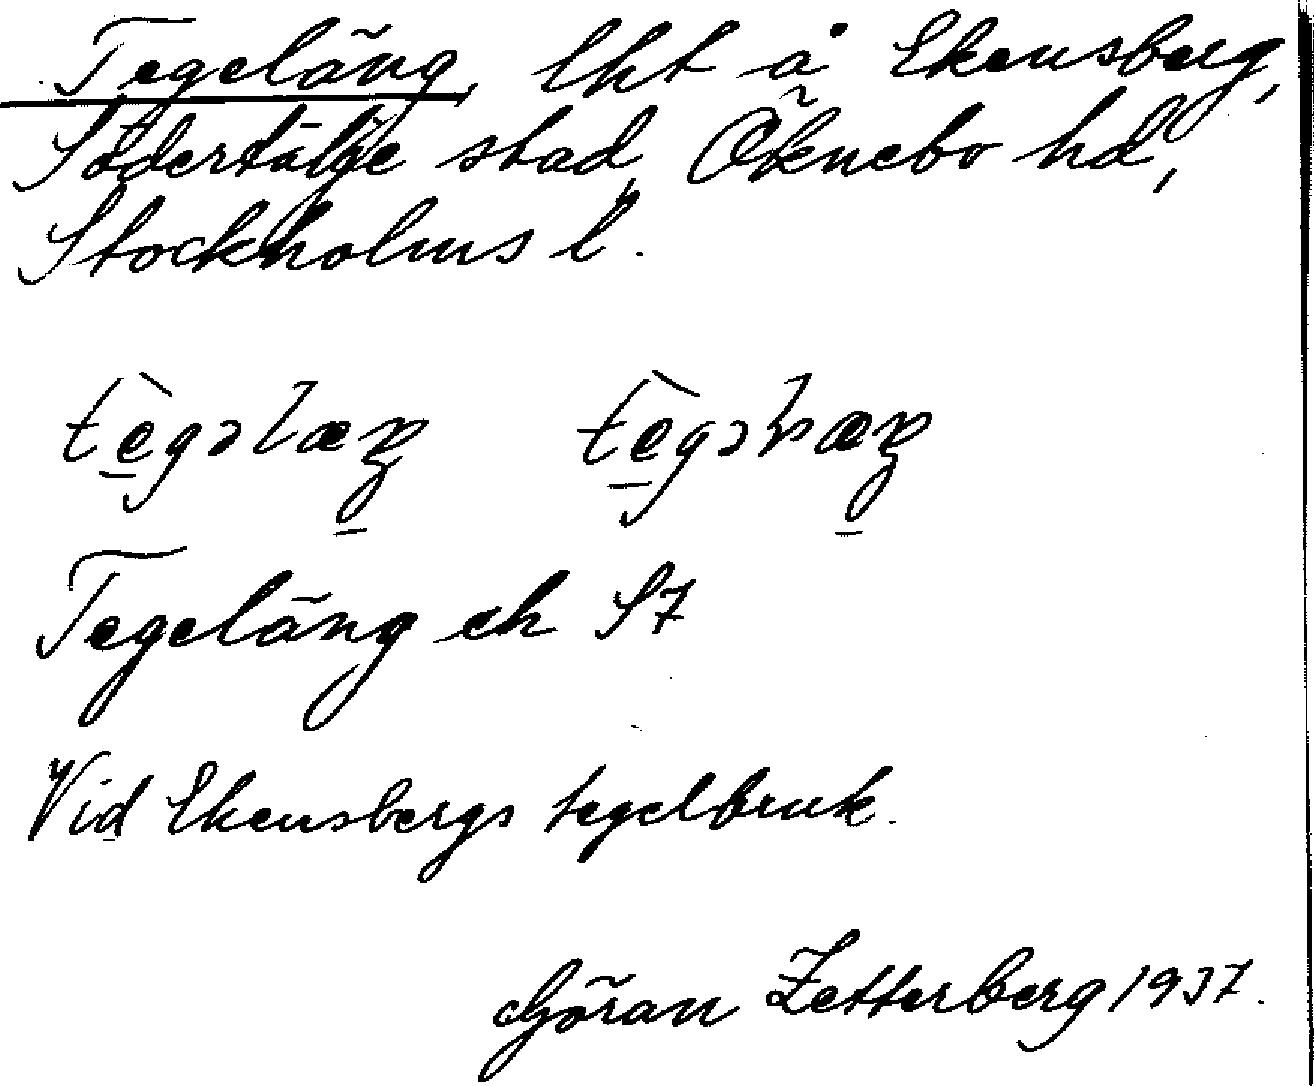 Tegeläng, lht å Ekensberg,
Södertälje stad, Öknebo hd,
Stockholms l.
Tegeläng ek S7
Vid Ekensbergs tegelbruk.
Göran Zetterberg 1937.